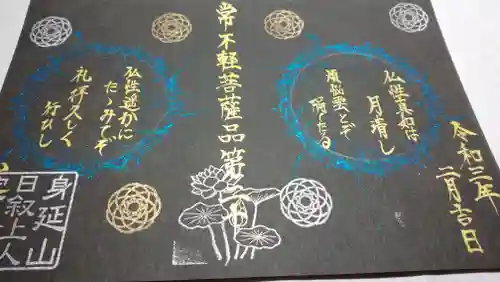 常不軽菩薩品第二十
仏性真如は
月清し
煩悩雲とぞ
隔たる
仏性遥かに
たゝみてぞ
礼拝久しく
行ひし
令和三年
二月吉日
身延山
日叙上人